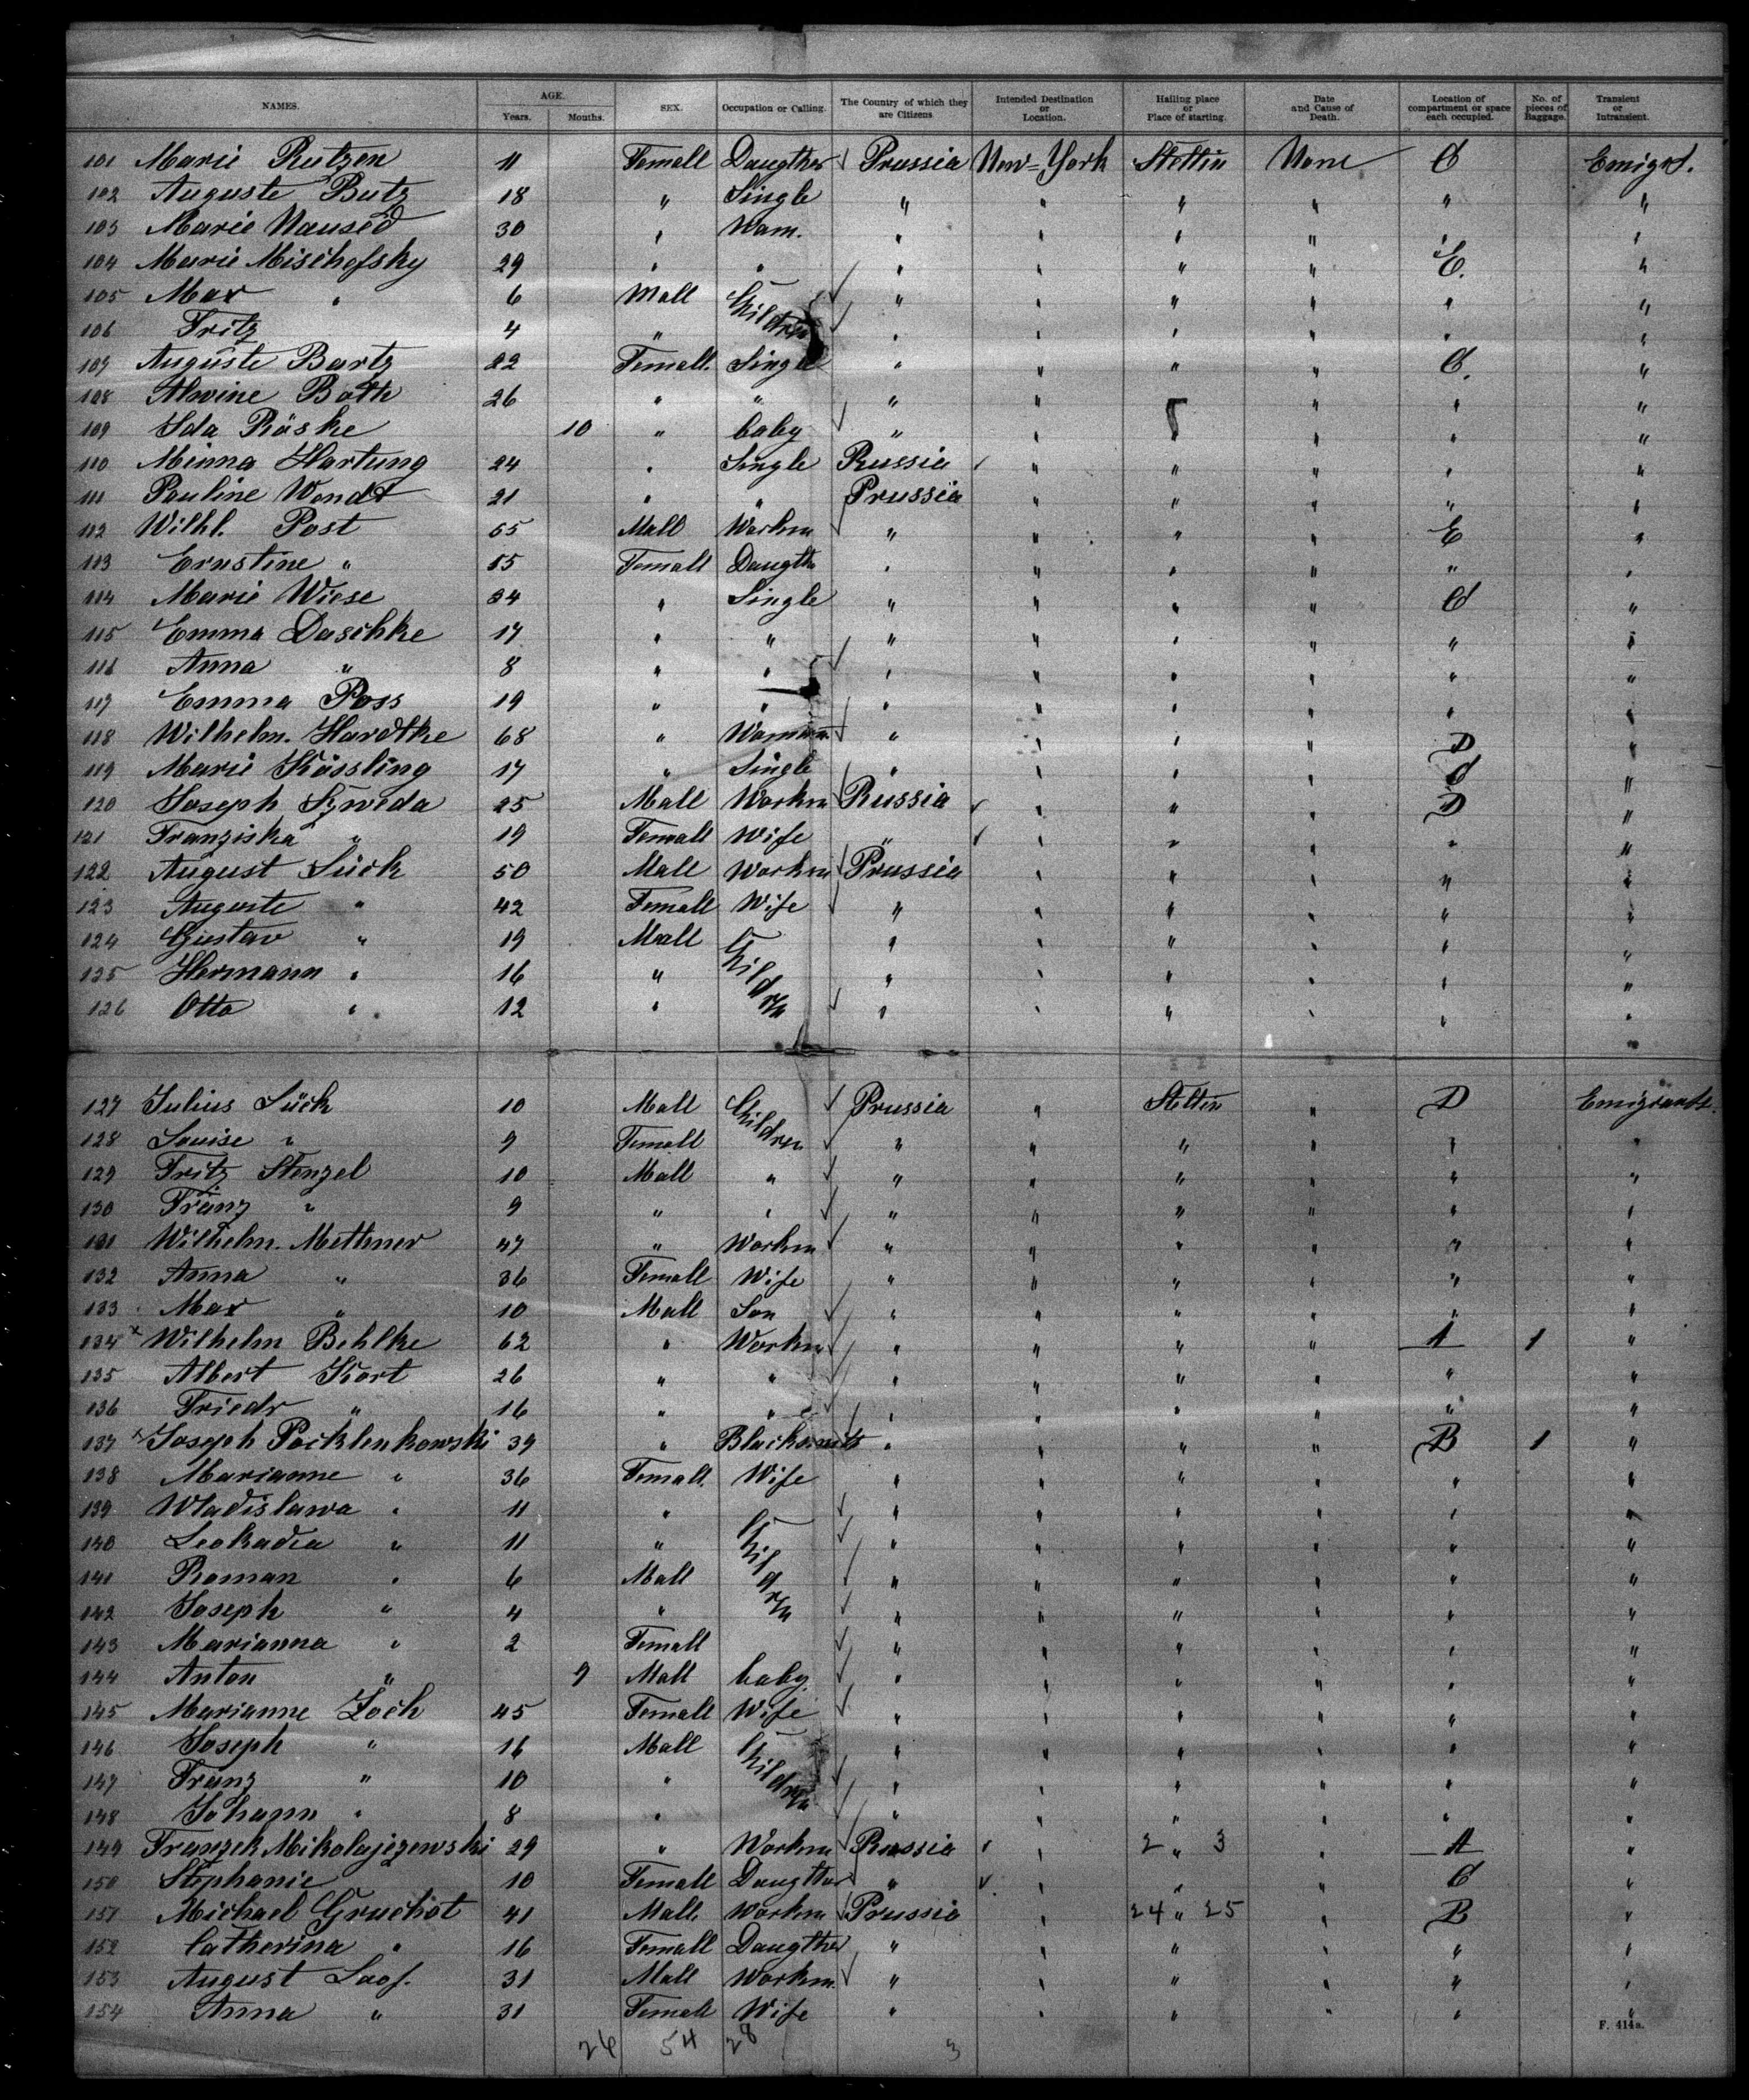 NAMES. AGE. Years. Months. SEX. Occupation or Calling. The Country of which they are Citizens Intended Destination or Location. Hailing place or Place of starting. Date and Cause of Death. Location of compartment or space each occupied. No. of pieces of Baggage. Transient or Intransient.
101 Marie Rutzen 11 Femall Daugther Prussia New-York Stettin None C Emigrt.
102 Auguste Butz 18 " Single " " " " " "
103 Marie Nauseid 30 " Wom. " " " " " "
104 Marie Mischofsky 29 " " " " " " E. "
105 Max " 6 Mall Children " " " " " "
106 Fritz 4 " " " " " " "
107 Auguste Bartz 22 Femall. Single " " " " C. "
108 Alwine Both 26 " " " " " " " "
109 Ida Räske 10 " baby " " " " " "
110 Minna Hartung 24 " Single Russia " " " " "
111 Pauline Wendt 21 " " Prussia " " " " "
112 Wilhl. Post 65 Mall Workm " " " " E "
113 Ernstine " 55 Femall Daugthe " " " " " "
114 Marie Wiese 24 " Single " " " " C "
115 Emma Daschke 17 " " " " " " " "
116 Anna " 8 " " " " " " " "
117 Emma Poss 19 " " " " " " " "
118 Wilhelm. Hardtke 68 " Womann " " " " D "
119 Marie Kössling 17 " Single " " " " C "
120 Joseph Szweda 25 Mall Workm Russia " " " D "
121 Franziska " 19 Femall Wife " " " " " "
122 August Lück 50 Mall Workm Prussia " " " " "
123 Auguste " 42 Femall Wife " " " " " "
124 Gustav " 19 Mall Children " " " " " "
125 Hermann " 16 " " " " " " "
126 Otto " 12 " " " " " " "
127 Julius Lück 10 Mall Children Prussia " Stettin " D Emigrants.
128 Louise " 9 Femall " " " " " "
129 Fritz Stenzel 10 Mall " " " " " " "
130 Franz " 9 " " " " " " " "
131 Wilhelm. Methner 47 " Workm " " " " " "
132 Anna " 36 Femall Wife " " " " " "
133 Max " 10 Mall Son " " " " " "
134 x Wilhelm Behlke 62 " Workm " " " " A 1 "
135 Albert Kort 26 " " " " " " " "
136 Friedr " 16 " " " " " " " "
137 x Joseph Pocklenkowski 39 " Blacksmith " " " " B 1 "
138 Marianne " 36 Femall. Wife " " " " " "
139 Wladislawa " 11 " Children " " " " " "
140 Leokadia " 11 " " " " " " "
141 Roman " 6 Mall " " " " " "
142 Joseph " 4 " " " " " " "
143 Marianna " 2 Femall " " " " " "
144 Anton " 9 Mall baby. " " " " " "
145 Marianne Zoch 45 Femall Wife " " " " " "
146 Joseph " 16 Mall Children " " " " " "
147 Franz " 10 " " " " " " "
148 Johann " 8 " " " " " " "
149 Franzek Mikolajezewski 29 " Workm Russia " 2 " 3 " A "
150 Stephanie " 10 Femall Daugther " " " " C "
151 Michael Gruchot 41 Mall. Workm Prussia " 24 " 25 " B "
152 Catherina " 16 Femall Daugther " " " " " "
153 August 31 Mall Workm. " " " " " "
154 Anna " 31 Femall Wife " " " " " "
F. 414a.
26 54 28 3